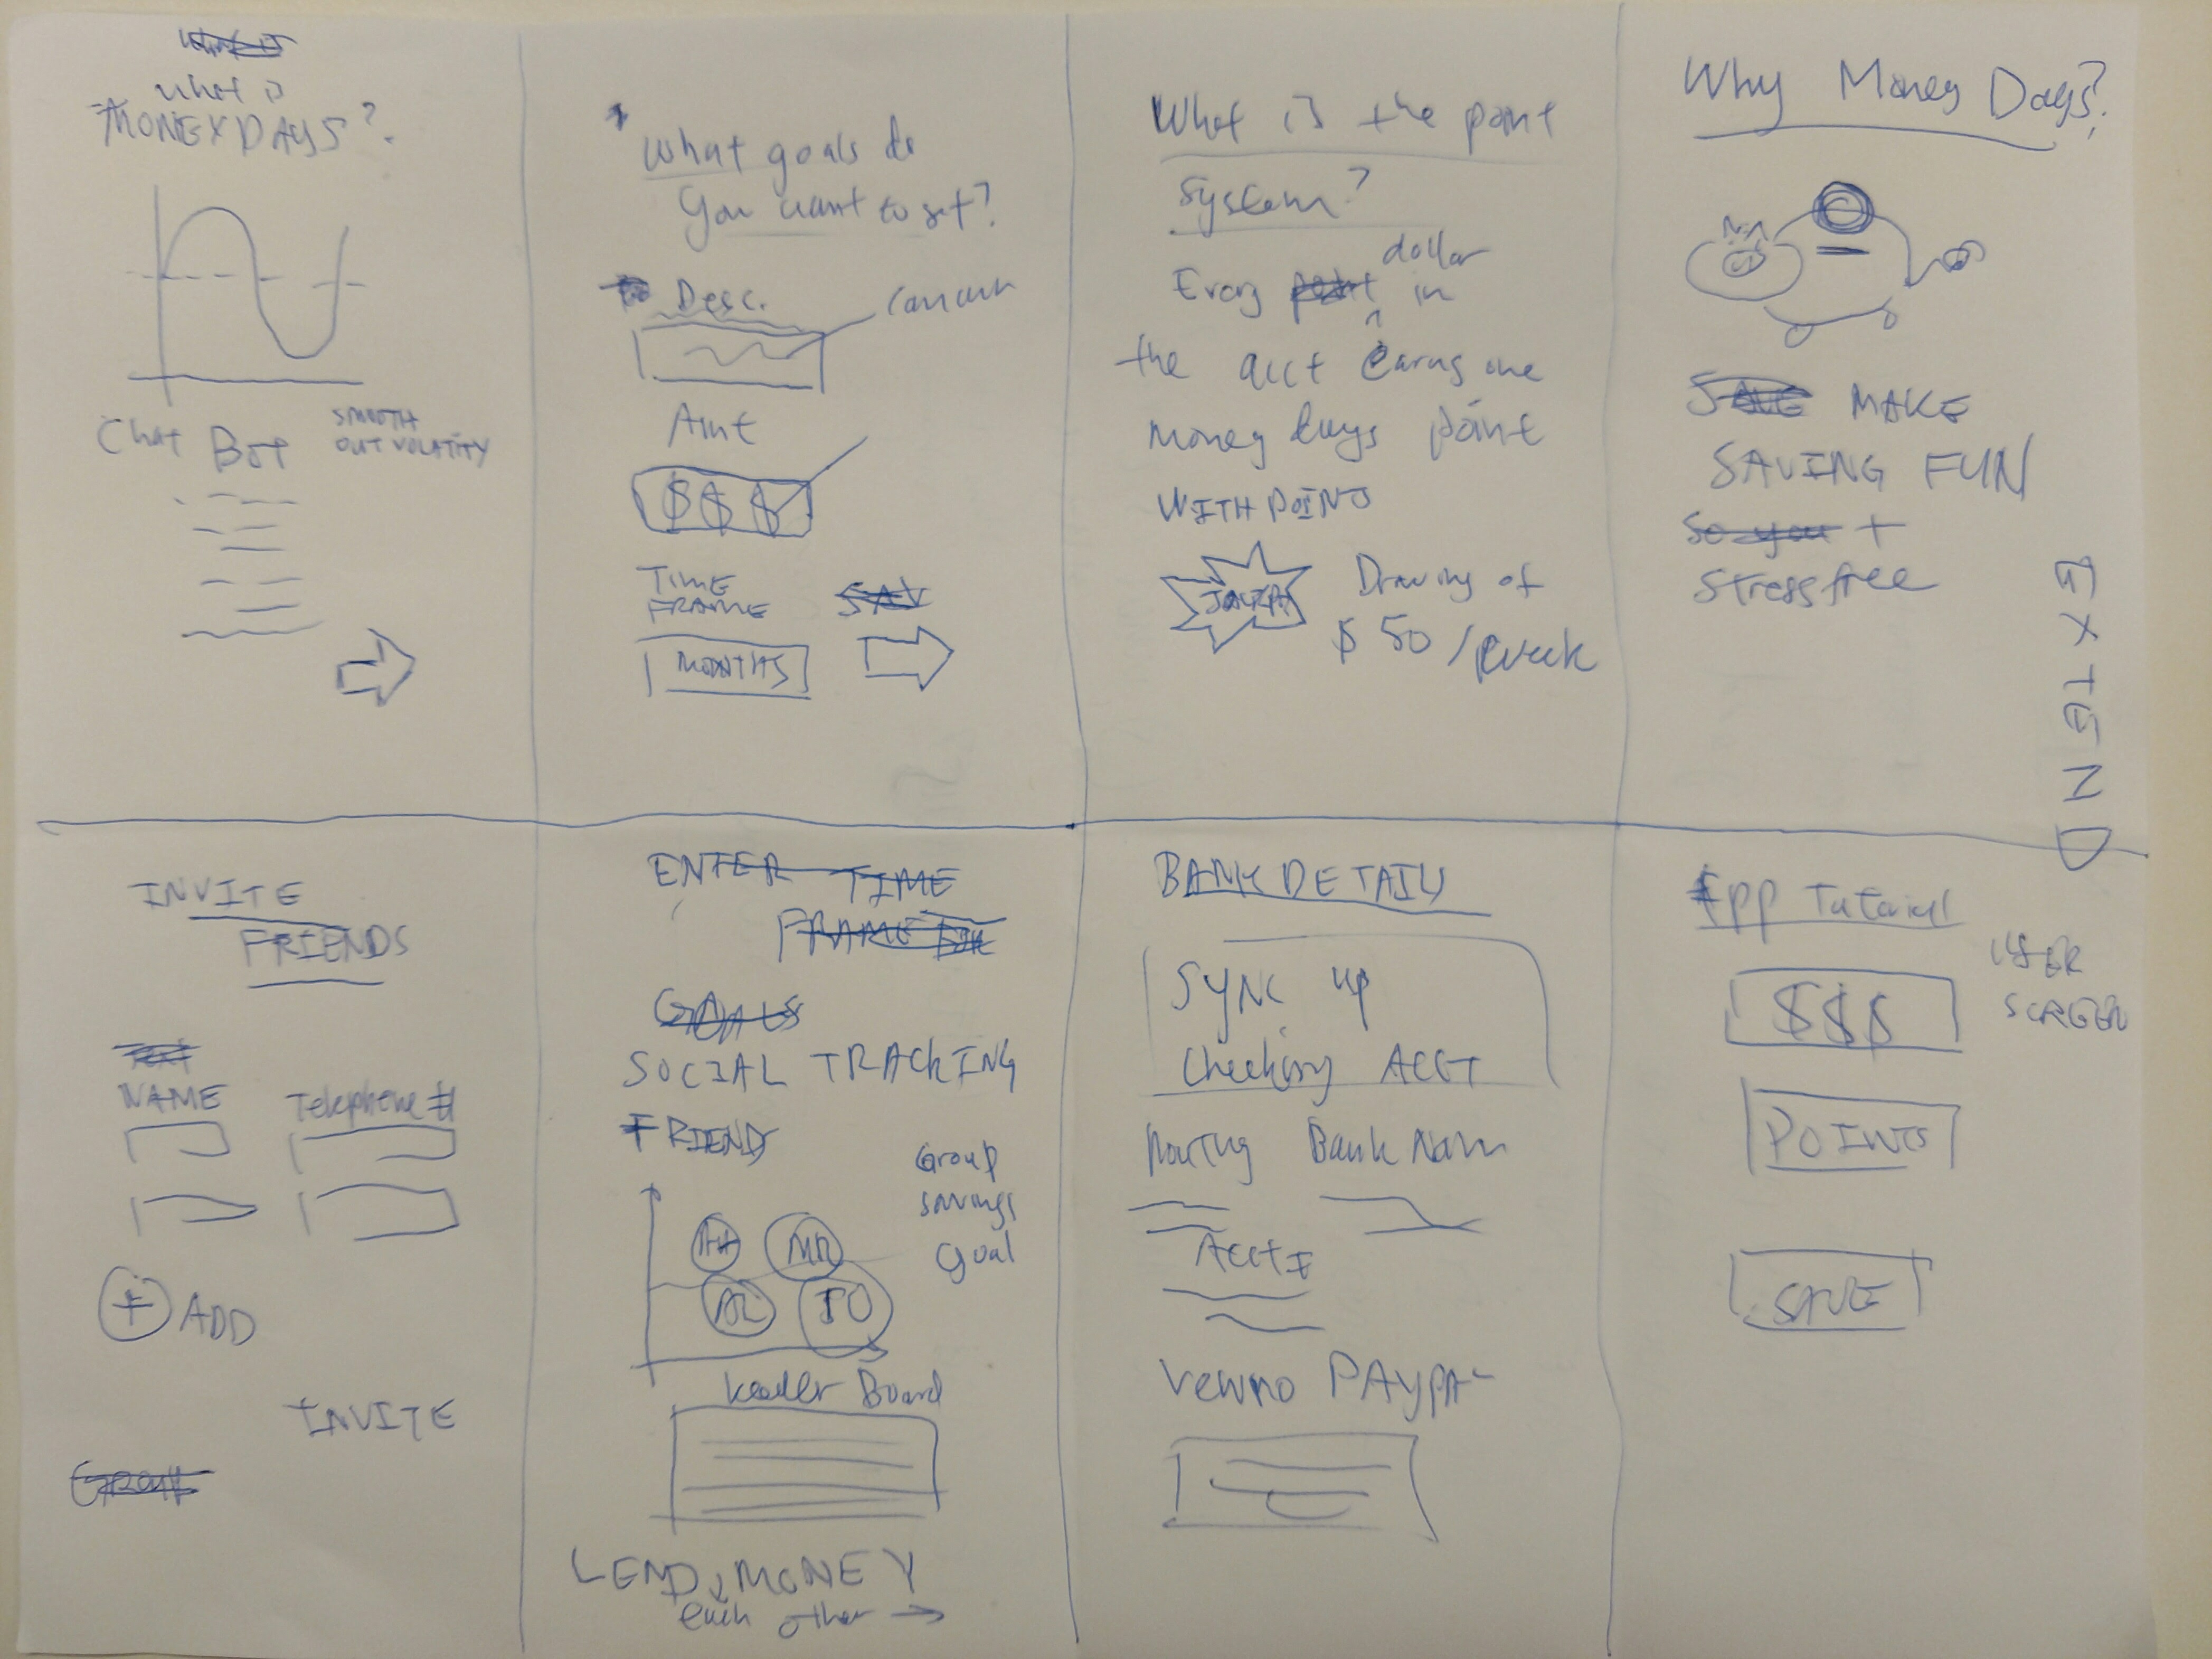 What is
MONEYDAYS?
Chat Bot
SMOOTH
OUT VOLATITY
What goals do
you want to set?
Desc.
Amt
$$$
TIME
FRAME
MONTHS
What is the point
system?
dollar
Every point in
the acct earns one
Money Days point
WITH POINTS
Drawing of
$50 /week
Why Money Days?
SAVE MAKE
SAVING FUN
So you +
Stress free
EXTEND
INVITE
FRIENDS
TEXT
NAME
Telephone #
+ ADD
INVITE
GROUP
ENTER TIME
FRAME FOR
GOALS
SOCIAL TRACKING
FRIENDS
Group
savings
goal
MR
Leader Board
LEND MONEY
each other
BANK DETAILS
SYNC up
Checking ACCT
Routing Bank Nam
Acct #
Venmo PAYPAL
App Tutorial
USER
SCREEN
$$$
POINTS
SAVE